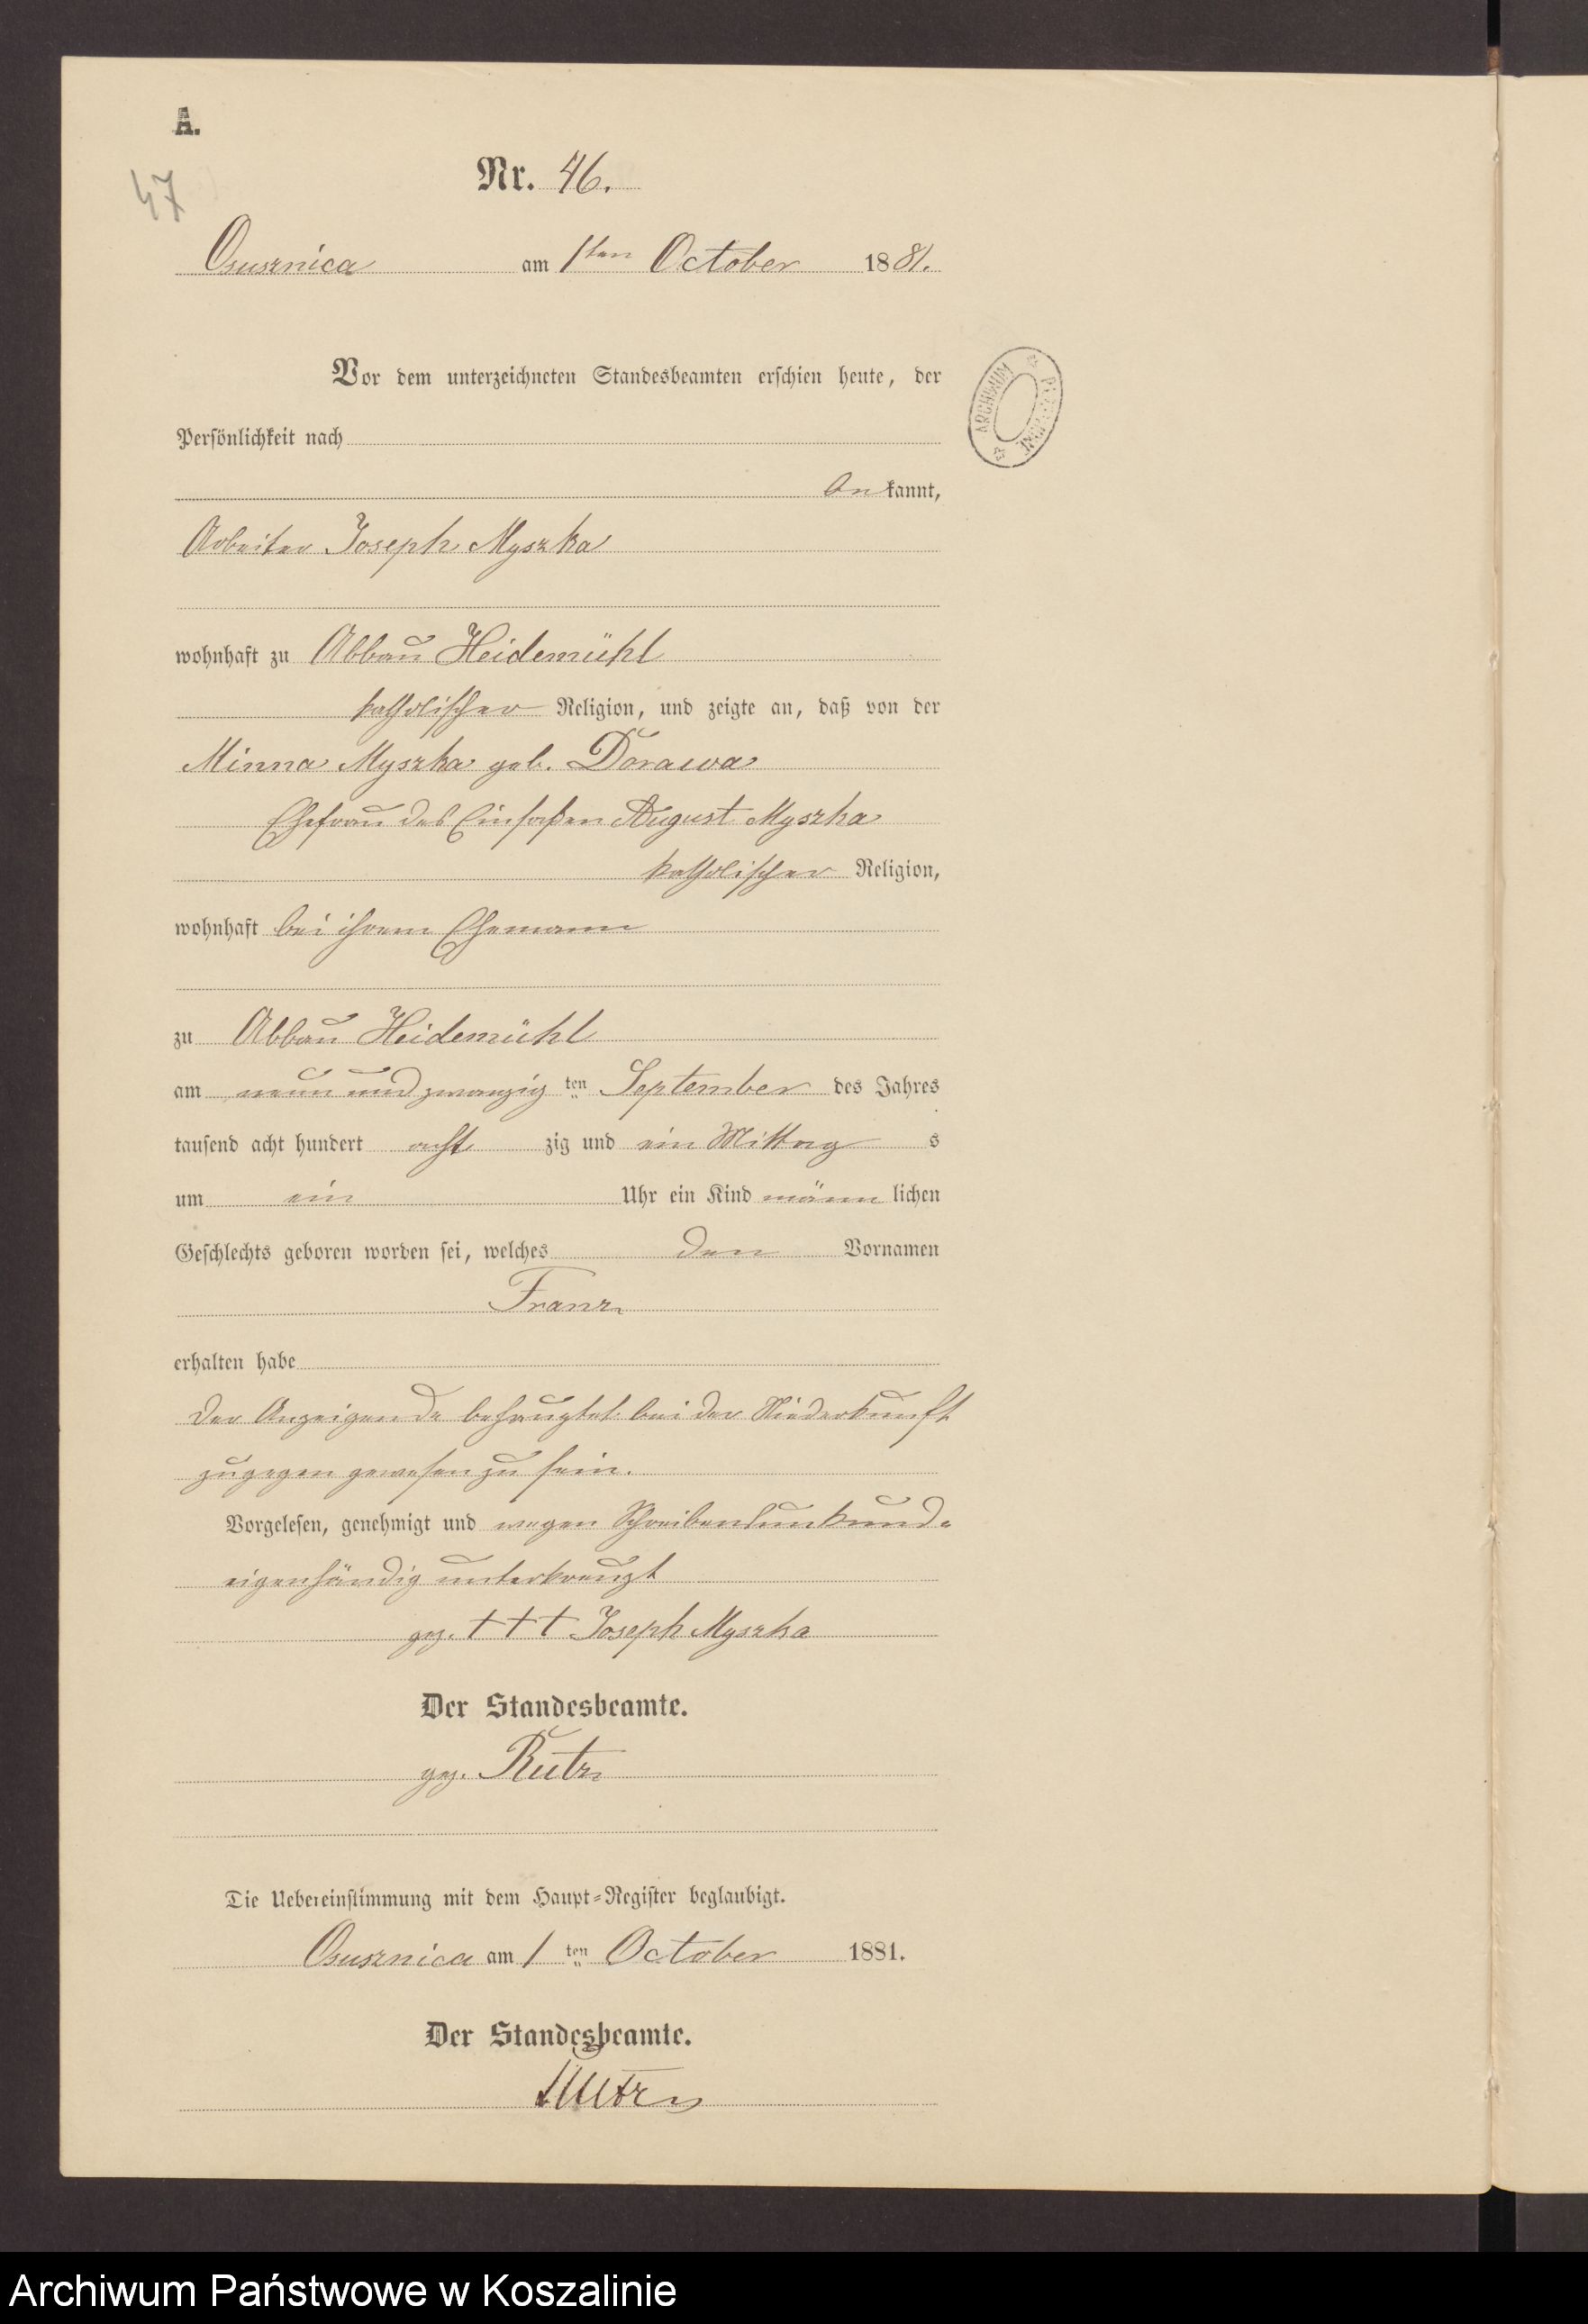 A.
47
Nr. 46.
Osusznica am 1ten October 1881.
Vor dem unterzeichneten Standesbeamten erschien heute, der
Persönlichkeit nach
bekannt,
Arbeiter Joseph Myszka
wohnhaft zu Abbau Heidemühl
katholischer Religion, und zeigte an, daß von der
Minna Myszka geb. Dorawa
Ehefrau des Einsaßen August Myszka
katholischer Religion,
wohnhaft bei ihrem Ehemann
zu Abbau Heidemühl
am neun und zwanzig ten September des Jahres
tausend acht hundert acht zig und ein Mittag s
um ein Uhr ein Kind männ lichen
Geschlechts geboren worden sei, welches den Vornamen
Franz
erhalten habe
Der Anzeigende behauptet bei der Niederkunft
zugegen gewesen zu sein.
Vorgelesen, genehmigt und wegen Schreibensunkund-
eigenhändig unterkreuzt
gez. +++ Joseph Myszka
Der Standesbeamte.
gez. Rutz
Die Uebereinstimmung mit dem Haupt-Register beglaubigt.
Osusznica am 1 ten October 1881.
Der Standesbeamte.
Rutz
ARCHIWUM
Archiwum Państwowe w Koszalinie